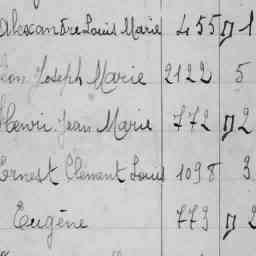 Alexandre Louis Marie 455 n 1
Léon Joseph Marie 2122 5
Henri Jean Marie 772 n 2
Ernest Clément Louis 1098 3
Eugène 773 n 2